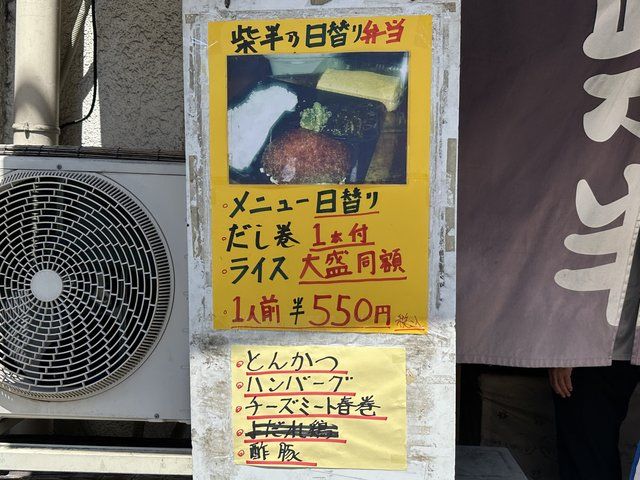 柴半の日替り弁当
◦メニュー日替り
◦だし巻 1本付
◦ライス 大盛同額
◦1人前 半550円 税込
◦とんかつ
◦ハンバーグ
◦チーズミート春巻
◦よだれ鶏
◦酢豚
半